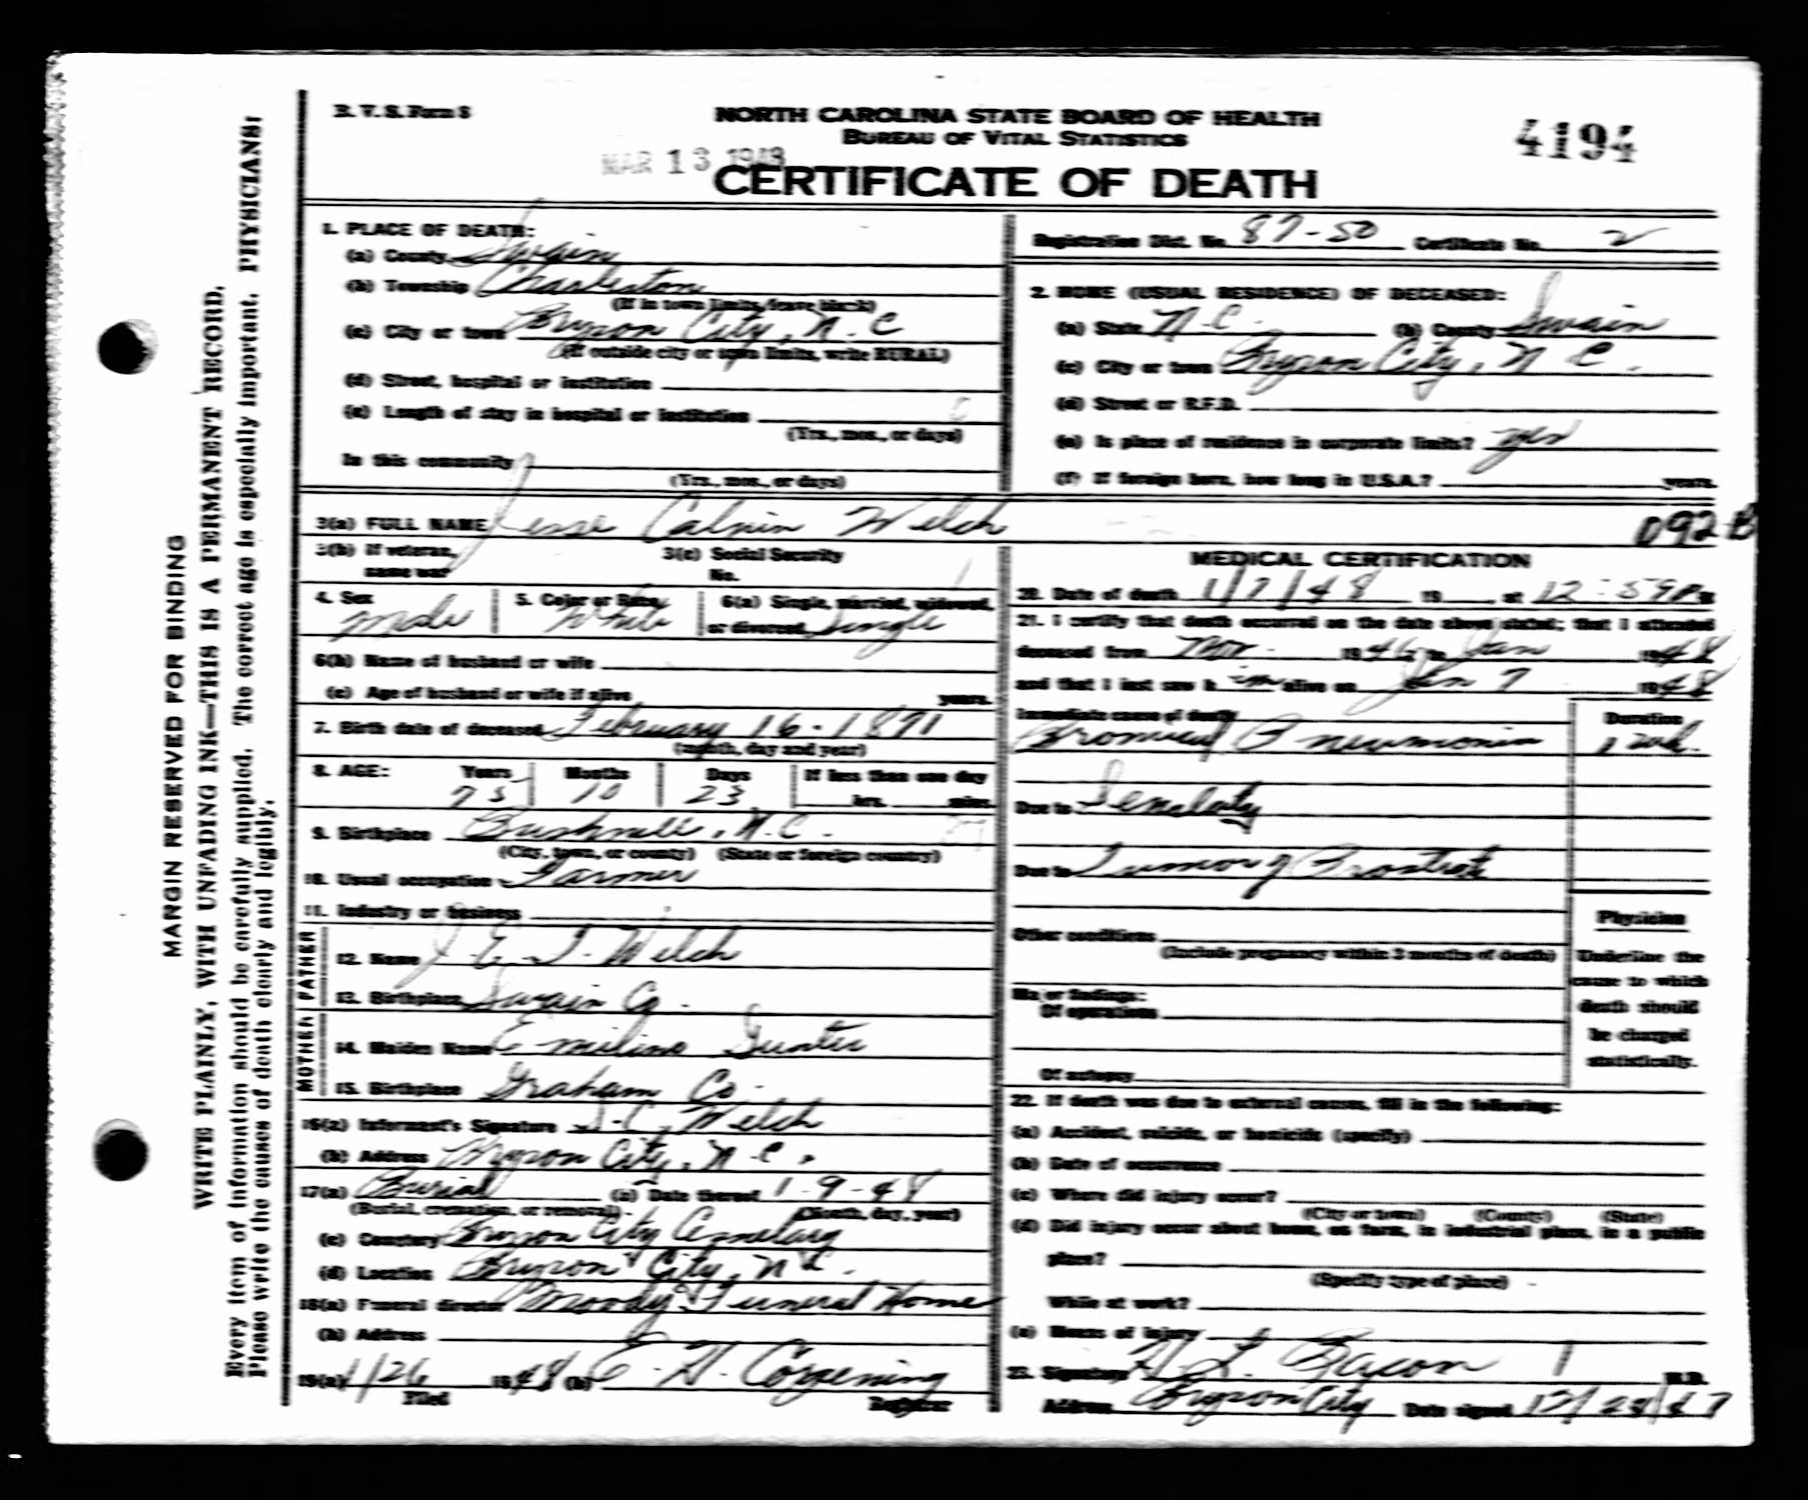 B. V. S. Form 8
NORTH CAROLINA STATE BOARD OF HEALTH
BUREAU OF VITAL STATISTICS
MAR 13 1948
CERTIFICATE OF DEATH
4194
MARGIN RESERVED FOR BINDING
WRITE PLAINLY, WITH UNFADING INK—THIS IS A PERMANENT RECORD.
Every item of information should be carefully supplied. The correct age is especially important. PHYSICIANS:
Please write the causes of death clearly and legibly.
1. PLACE OF DEATH:
(a) County Swain
(b) Township Charleston
(If in town limits, leave blank)
(c) City or town Bryson City, N. C
(If outside city or town limits, write RURAL)
(d) Street, hospital or institution
(e) Length of stay in hospital or institution
(Yrs., mos., or days)
In this community
(Yrs., mos., or days)
Registration Dist. No. 87-50 Certificate No. 2
2. HOME (USUAL RESIDENCE) OF DECEASED:
(a) State N.C. (b) County Swain
(c) City or town Bryson City, N C.
(d) Street or R.F.D.
(e) Is place of residence in corporate limits? yes
(f) If foreign born, how long in U.S.A.? years.
3(a) FULL NAME Jesse Calvin Welch
092 B
3(b) If veteran, name war
3(c) Social Security No.
4. Sex Male
5. Color or Race White
6(a) Single, married, widowed, or divorced Single
6(b) Name of husband or wife
(c) Age of husband or wife if alive years.
7. Birth date of deceased February 16 - 1871
(month, day and year)
8. AGE: Years Months Days If less than one day
75 10 23 hrs. mins.
9. Birthplace Bushnell, N.C.
(City, town, or county) (State or foreign country)
10. Usual occupation Farmer
11. Industry or business
FATHER
12. Name J. E. T. Welch
13. Birthplace Swain Co.
MOTHER
14. Maiden Name Emiline Gunter
15. Birthplace Graham Co.
16(a) Informant's Signature C. Welch
(b) Address Bryson City, N. C.
17(a) Burial (b) Date thereof 1-9-48
(Burial, cremation, or removal) (Month, day, year)
(c) Cemetery Bryson City Cemetary
(d) Location Bryson City, N C.
18(a) Funeral director Moody Funeral Home
(b) Address
19(a) 1/26 1948 (b) E. H. Corpening
Filed Registrar
MEDICAL CERTIFICATION
20. Date of death 1/7/48 19 at 12:59 P M
21. I certify that death occurred on the date above stated; that I attended
deceased from Nov. 1946 to Jan 1948
and that I last saw him alive on Jan 7 1948
Immediate cause of death Duration
Bronchial Pneumonia 1 wk.
Due to Senility
Due to Tumor of Prostrate
Other conditions
(Include pregnancy within 3 months of death)
Major findings:
Of operations
Of autopsy
Physician
Underline the
cause to which
death should
be charged
statistically.
22. If death was due to external causes, fill in the following:
(a) Accident, suicide, or homicide (specify)
(b) Date of occurrence
(c) Where did injury occur?
(City or town) (County) (State)
(d) Did injury occur about home, on farm, in industrial place, in a public
place?
(Specify type of place)
While at work?
(e) Means of injury
23. Signature H. L. Bacon M.D.
Address Bryson City Date signed 12/28/47